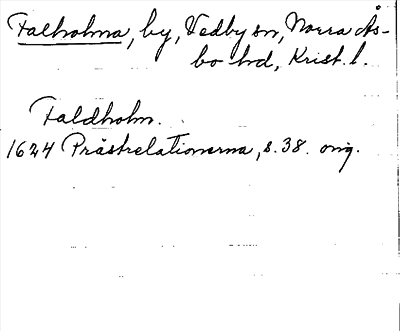 Falholma, by, Vedby sn, Norra Ås-
bo hd, Krist. l.
Faldholm.
1624 Prästrelationerna, s. 38. orig.